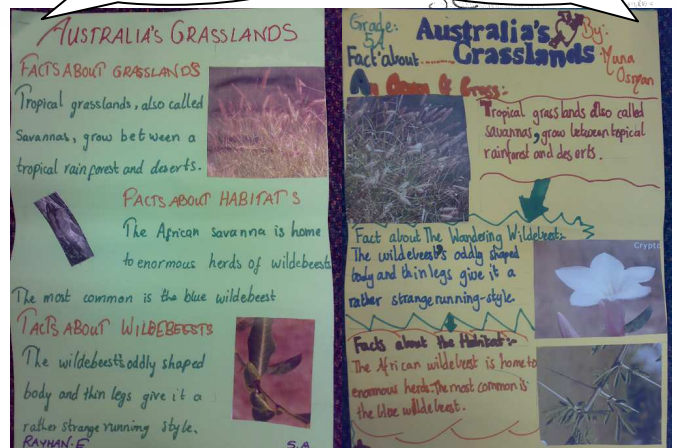 AUSTRALIA'S GRASSLANDS
FACTS ABOUT GRASSLANDS
Tropical grasslands, also called
Savannas, grow between a
tropical rain forest and deserts.
FACTS ABOUT HABITAT'S
The African savanna is home
to enormous herds of wildebeests
The most common is the blue wildebeest
FACTS ABOUT WILDEBEESTS
The wildebeest's oddly shaped
body and thin legs give it a
rather strange running style.
RAYHAN.E
5.A
Grade:
5A
Australia's
Grasslands
By:
Muna
Osman
Fact about
An Ocean of Grass:
Tropical grasslands also called
savannas, grow between topical
rainforst and des erts.
Fact about The Wandering Wildebeest:
The wildebeest's oddly shaped
body and thin legs give it a
rather strange running-style.
Facts about the Habitat:
The African wildebeest is home to
enormous herds. The most common is
the blue willdebeest.
Crypto